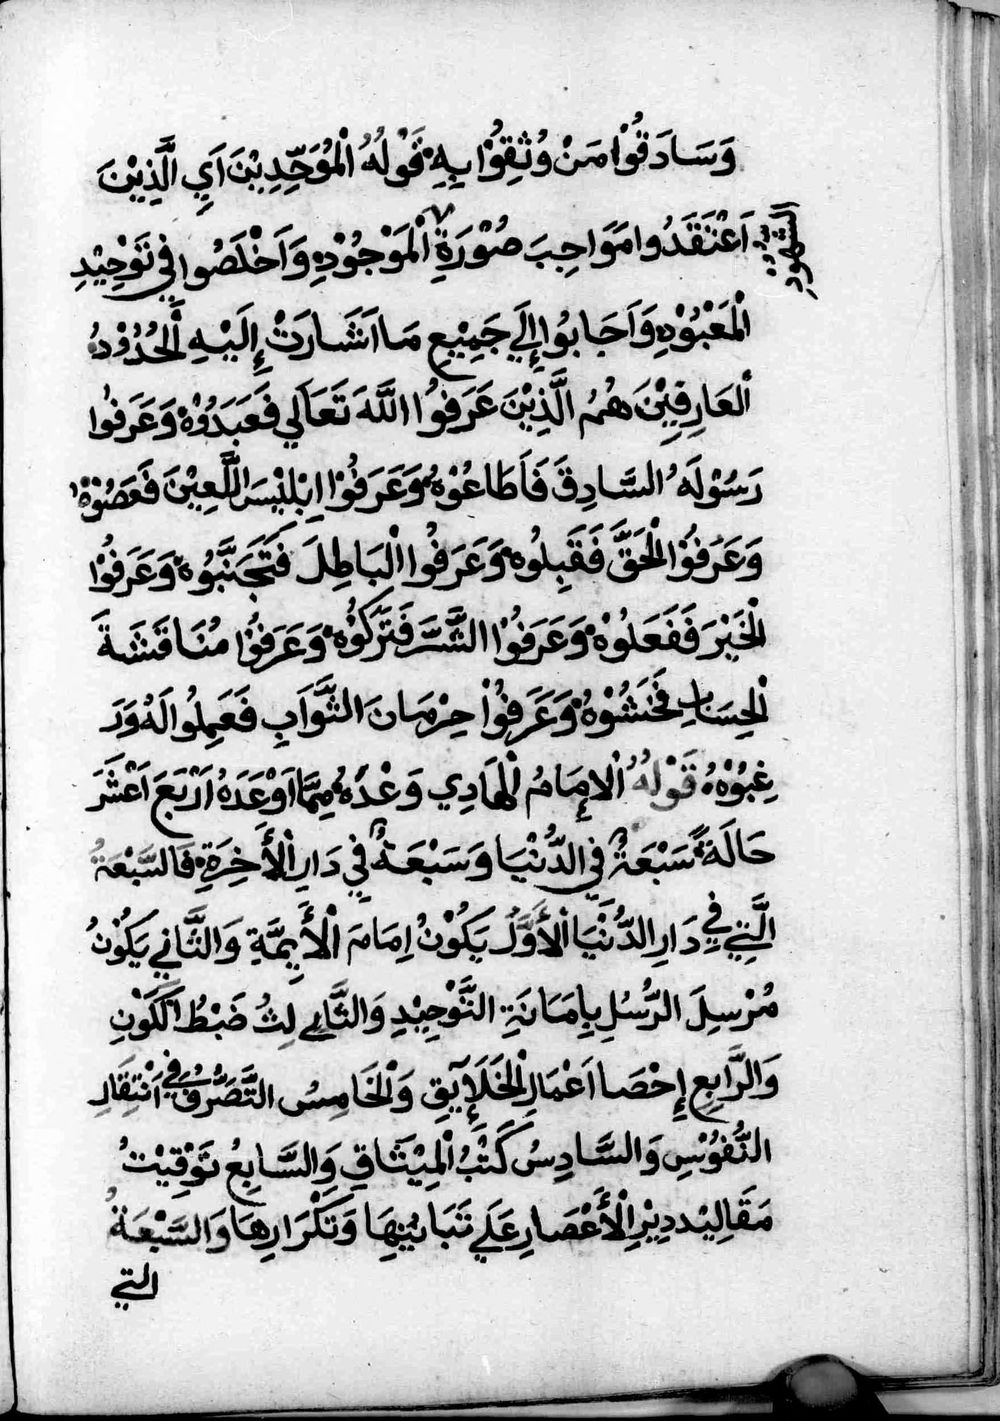 وَسَادَقُوْا مَنْ وُثِقُوْا بِهِ قَوْلُهُ الْمُوَحِّدِيْنَ اَيِ الَّذِيْنَ
اَعْتَقَدُوا مَوَاجِبَ صُوْرَةِ الْمَوْجُوْدِ وَاَخْلَصُوا فِي تَوْحِيْدِ
الْمَعْبُوْدِ وَاَجَابُوا إِلَي جَمِيْعِ مَا اَشَارَتْ إِلَيْهِ الْحُدُوْدُ
الْعَارِفِيْنَ هُمُ الَّذِيْنَ عَرَفُوا اللَّهَ تَعَالَي فَعَبَدُوْهُ وَعَرَفُوا
رَسُوْلَهُ السَّادِقَ فَاَطَاعُوْهُ وَعَرَفُوْا اِبْلِيْسَ اللَّعِيْنَ فَعَصُوْهُ
وَعَرَفُوْا الْحَقَّ فَقَبِلُوْهُ وَعَرَفُوا الْبَاطِلَ فَتَجَنَّبُوْهُ وَعَرَفُوْا
الْخَيْرَ فَفَعَلُوْهُ وَعَرَفُوْا الشَّرَّ فَتَرَكُوْهُ وَعَرَفُوْا مُنَاقَشَةَ
الْحِسَابِ فَخَشُوْهُ وَعَرَفُوْا حِرْمَانَ الثَّوَابِ فَعَمِلُوا لَهُ وَرَ
غِبُوْهُ قَوْلُهُ الْإِمَامُ الْهَادِي وَعْدُهُ مِمَّا اَوْعَدَهُ اَرْبَعَ اَعْشَرَ
حَالَةً سَبْعَةٌ فِي الدُّنْيَا وَسَبْعَةٌ فِي دَارِ الْأَخِرَةِ فَالسَّبْعَةُ
الَّتِي فِي دَارِ الدُّنْيَا الْأَوَّلُ يَكُوْنُ اِمَامَ الْأَيِمَّةِ وَالثَّانِي يَكُوْنُ
مُرْسِلَ الرُّسُلِ بِاِمَانَةِ التَّوْحِيْدِ وَالثَّالِثُ ضَبْطُ الْكَوْنِ
وَالرَّابِع إِحْصَا اَعْمَالِ الْخَلَايِقِ وَالْخَامِسُ التَّصَرُّفُ فِي اَنْتِقَالِ
النُّفُوْسِ وَالسَّادِسُ كَتْبُ الْمِيْثَاقِ وَالسَّابِعُ تَوْقِيْتُ
مَقَالِيْد دِيْرِ الْأَعْصَارِ عَلَي تَبَايُنِهَا وَتَكْرَارِهَا وَالسَّبْعَةُ
التي